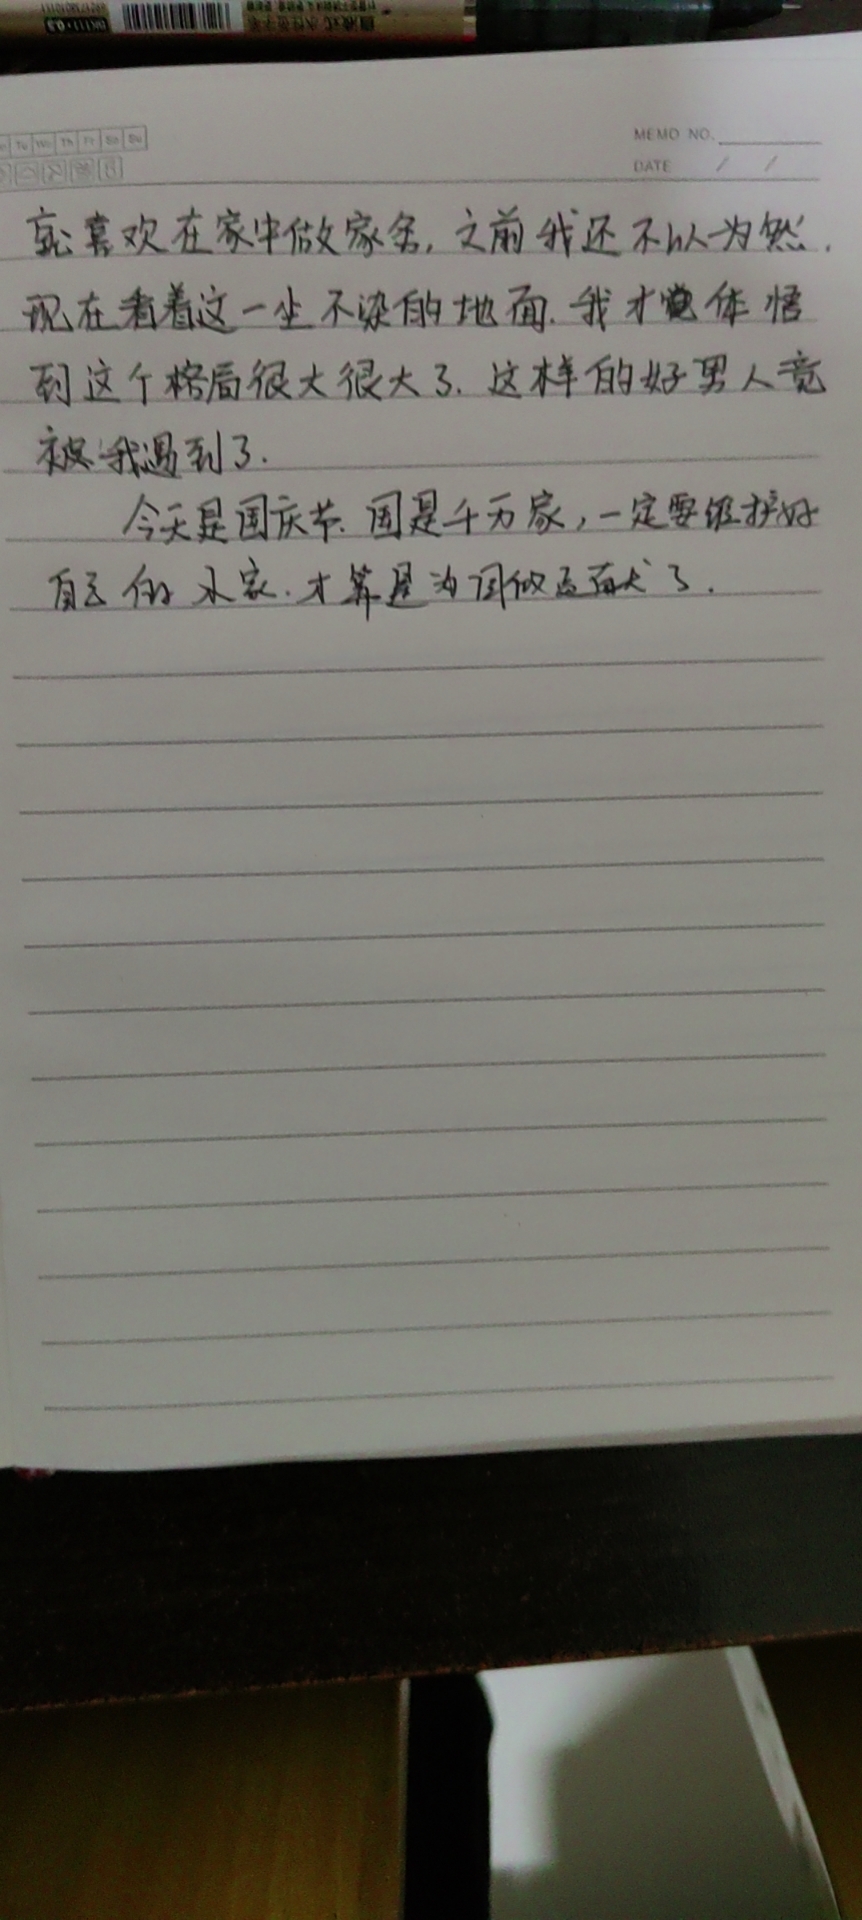 圆液式水性签字笔
DK1111·0.5
Tu We Th Fr Sa Su
MEMO NO.
DATE / /
就喜欢在家中做家务,之前我还不以为然.
现在看着这一尘不染的地面.我才体悟
到这个格局很大很大了.这样的好男人竟
被我遇到了.
今天是国庆节.国是千万家,一定要维护好
自己的小家.才算是为国做贡献了.